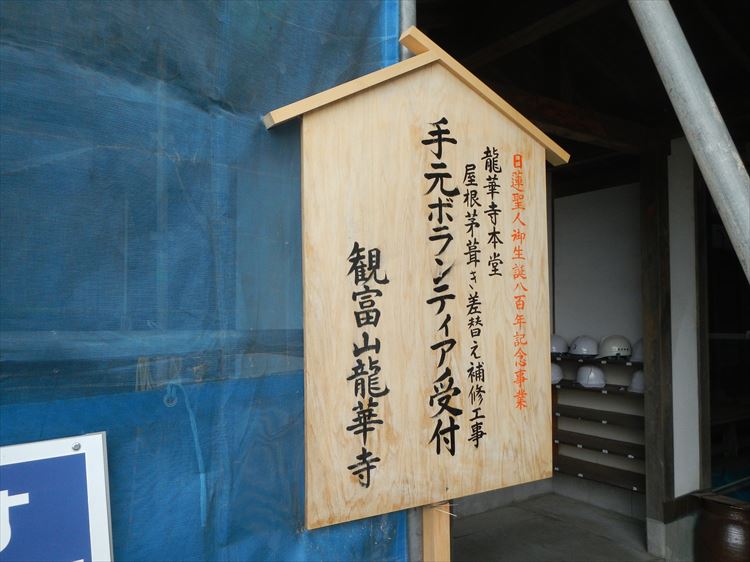 日蓮聖人御生誕八百年記念事業
龍華寺本堂
屋根茅葺き差替え補修工事
手元ボランティア受付
観富山龍華寺